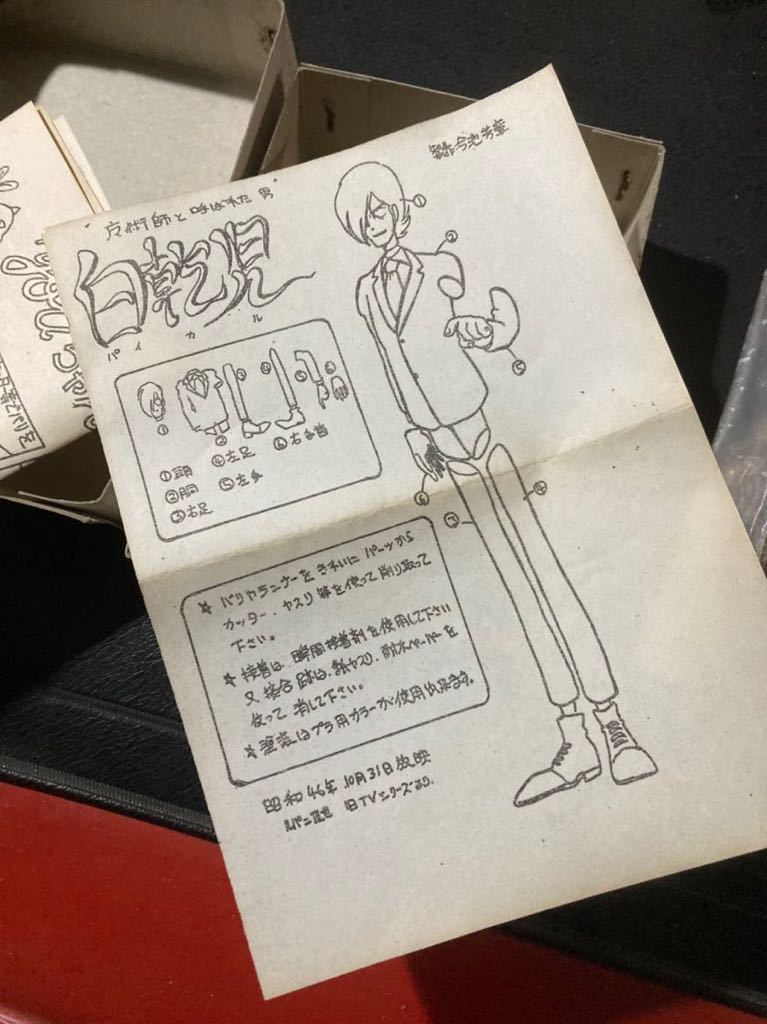 製作 今池芳章
魔術師と呼ばれた男
白乾児
パイカル
① ② ③ ④ ⑤ ⑥
①頭 ④左足 ⑥右手首
②胴 ⑤左手
③右足
☆ バリやランナーをきれいにパーツから
カッター、ヤスリ等を使って削り取って
下さい。
☆ 接着は、瞬間接着剤を使用して下さい
又、接合跡は、鉄ヤスリ、耐水ペーパーを
使って消して下さい。
☆ 塗装はプラ用カラーが使用出来ます。
昭和46年10月31日放映
ルパン三世 旧TVシリーズより
①
②
⑤
④
⑥
③